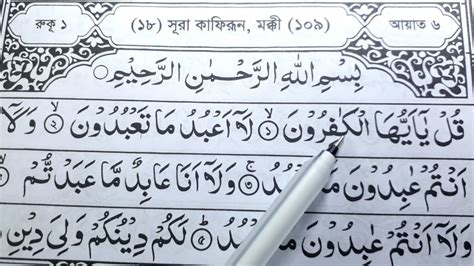 রুকূ ১
(১৮) সূরা কাফিরূন, মক্কী (১০৯)
আয়াত ৬
بِسْمِ اللهِ الرَّحْمٰنِ الرَّحِيْمِ
قُلْ يٰۤاَيُّهَا الْكٰفِرُوْنَ ۙ۱ لَاۤ اَعْبُدُ مَا تَعْبُدُوْنَ ۙ۲ وَلَاۤ
اَنْتُمْ عٰبِدُوْنَ مَاۤ ۳ وَلَاۤ اَنَا عَابِدٌ مَّا عَبَدْتُّمْ
وَلَاۤ اَنْتُمْ عٰبِدُوْنَ مَاۤ ۵ لَكُمْ دِيْنُكُمْ وَلِىَ دِيْنِ